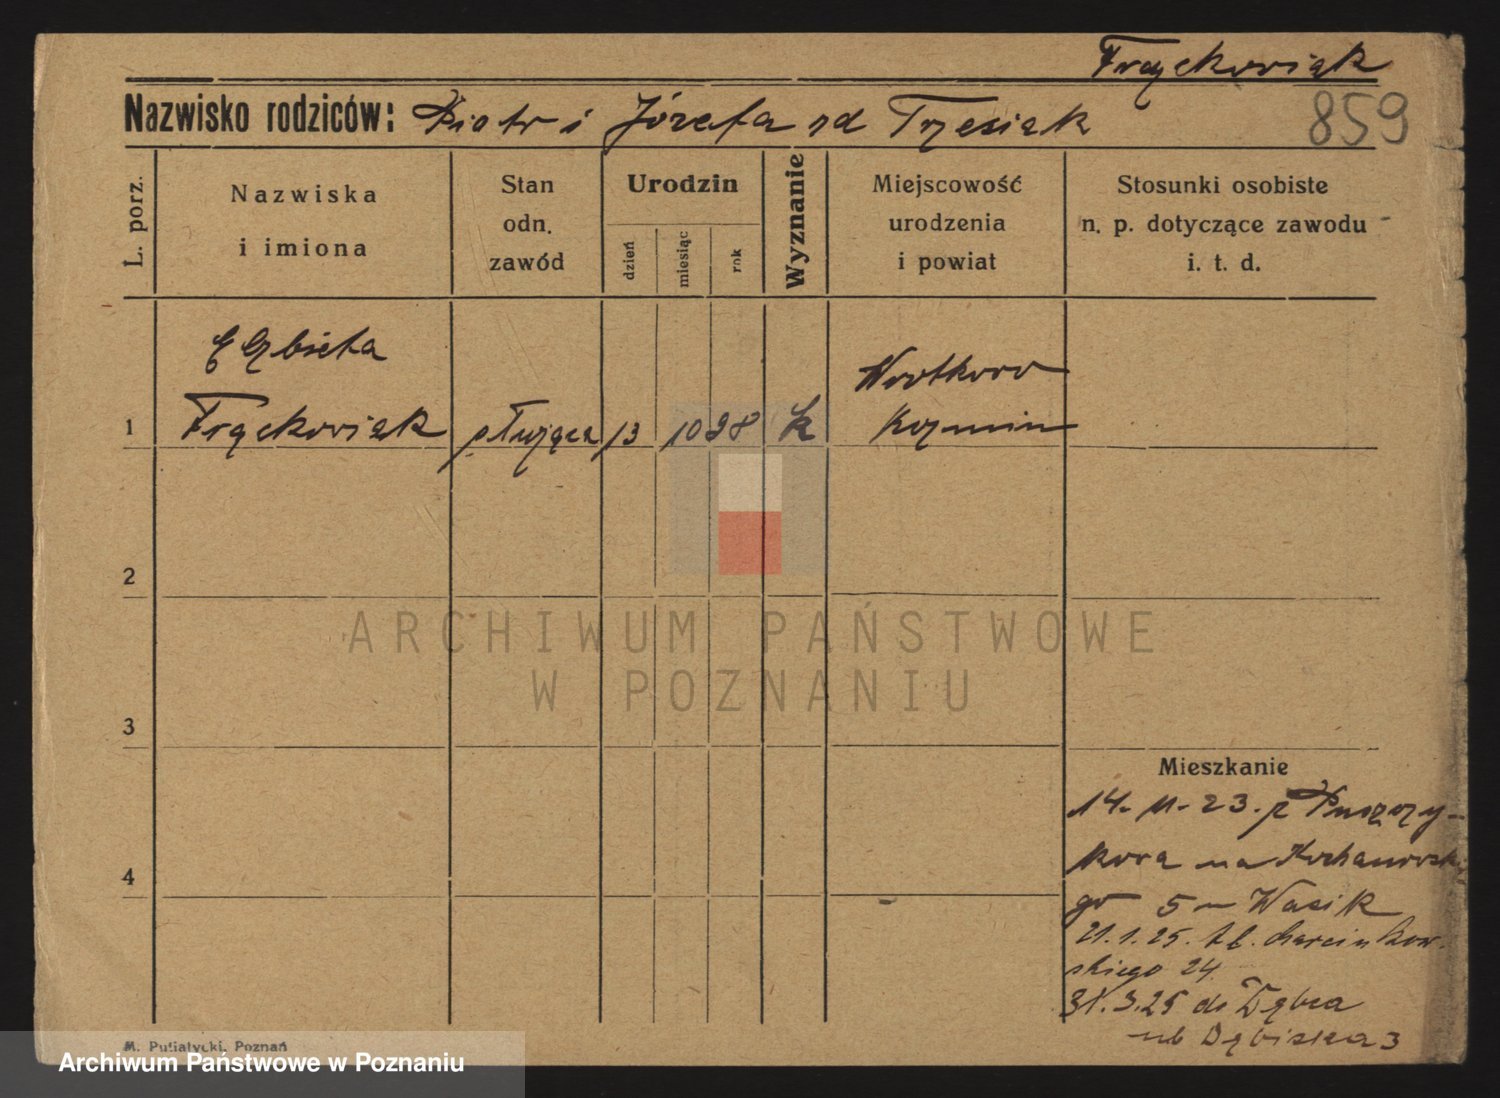 Frąckowiak
Nazwisko rodziców: Piotr i Józefa od Trzesiak
859
L. porz.
Nazwiska
i imiona
Stan
odn.
zawód
Urodzin
dzień
miesiąc
rok
Wyznanie
Miejscowość
urodzenia
i powiat
Stosunki osobiste
n. p. dotyczące zawodu
i. t. d.
Elżbieta
Wrotkowo
1 Frąckowiak służąca 13 10 98 k Koźmin
2
ARCHIWUM PAŃSTWOWE
W POZNANIU
3
Mieszkanie
14. 11. 23. z Puszczy-
kowa na Kochanowskie
4
go 5 Wasik
21.1.25. Marcinkow-
skiego 24.
31.3.25 do Dębca
ul Dębiska 3
M. Putiatycki, Poznań
Archiwum Państwowe w Poznaniu